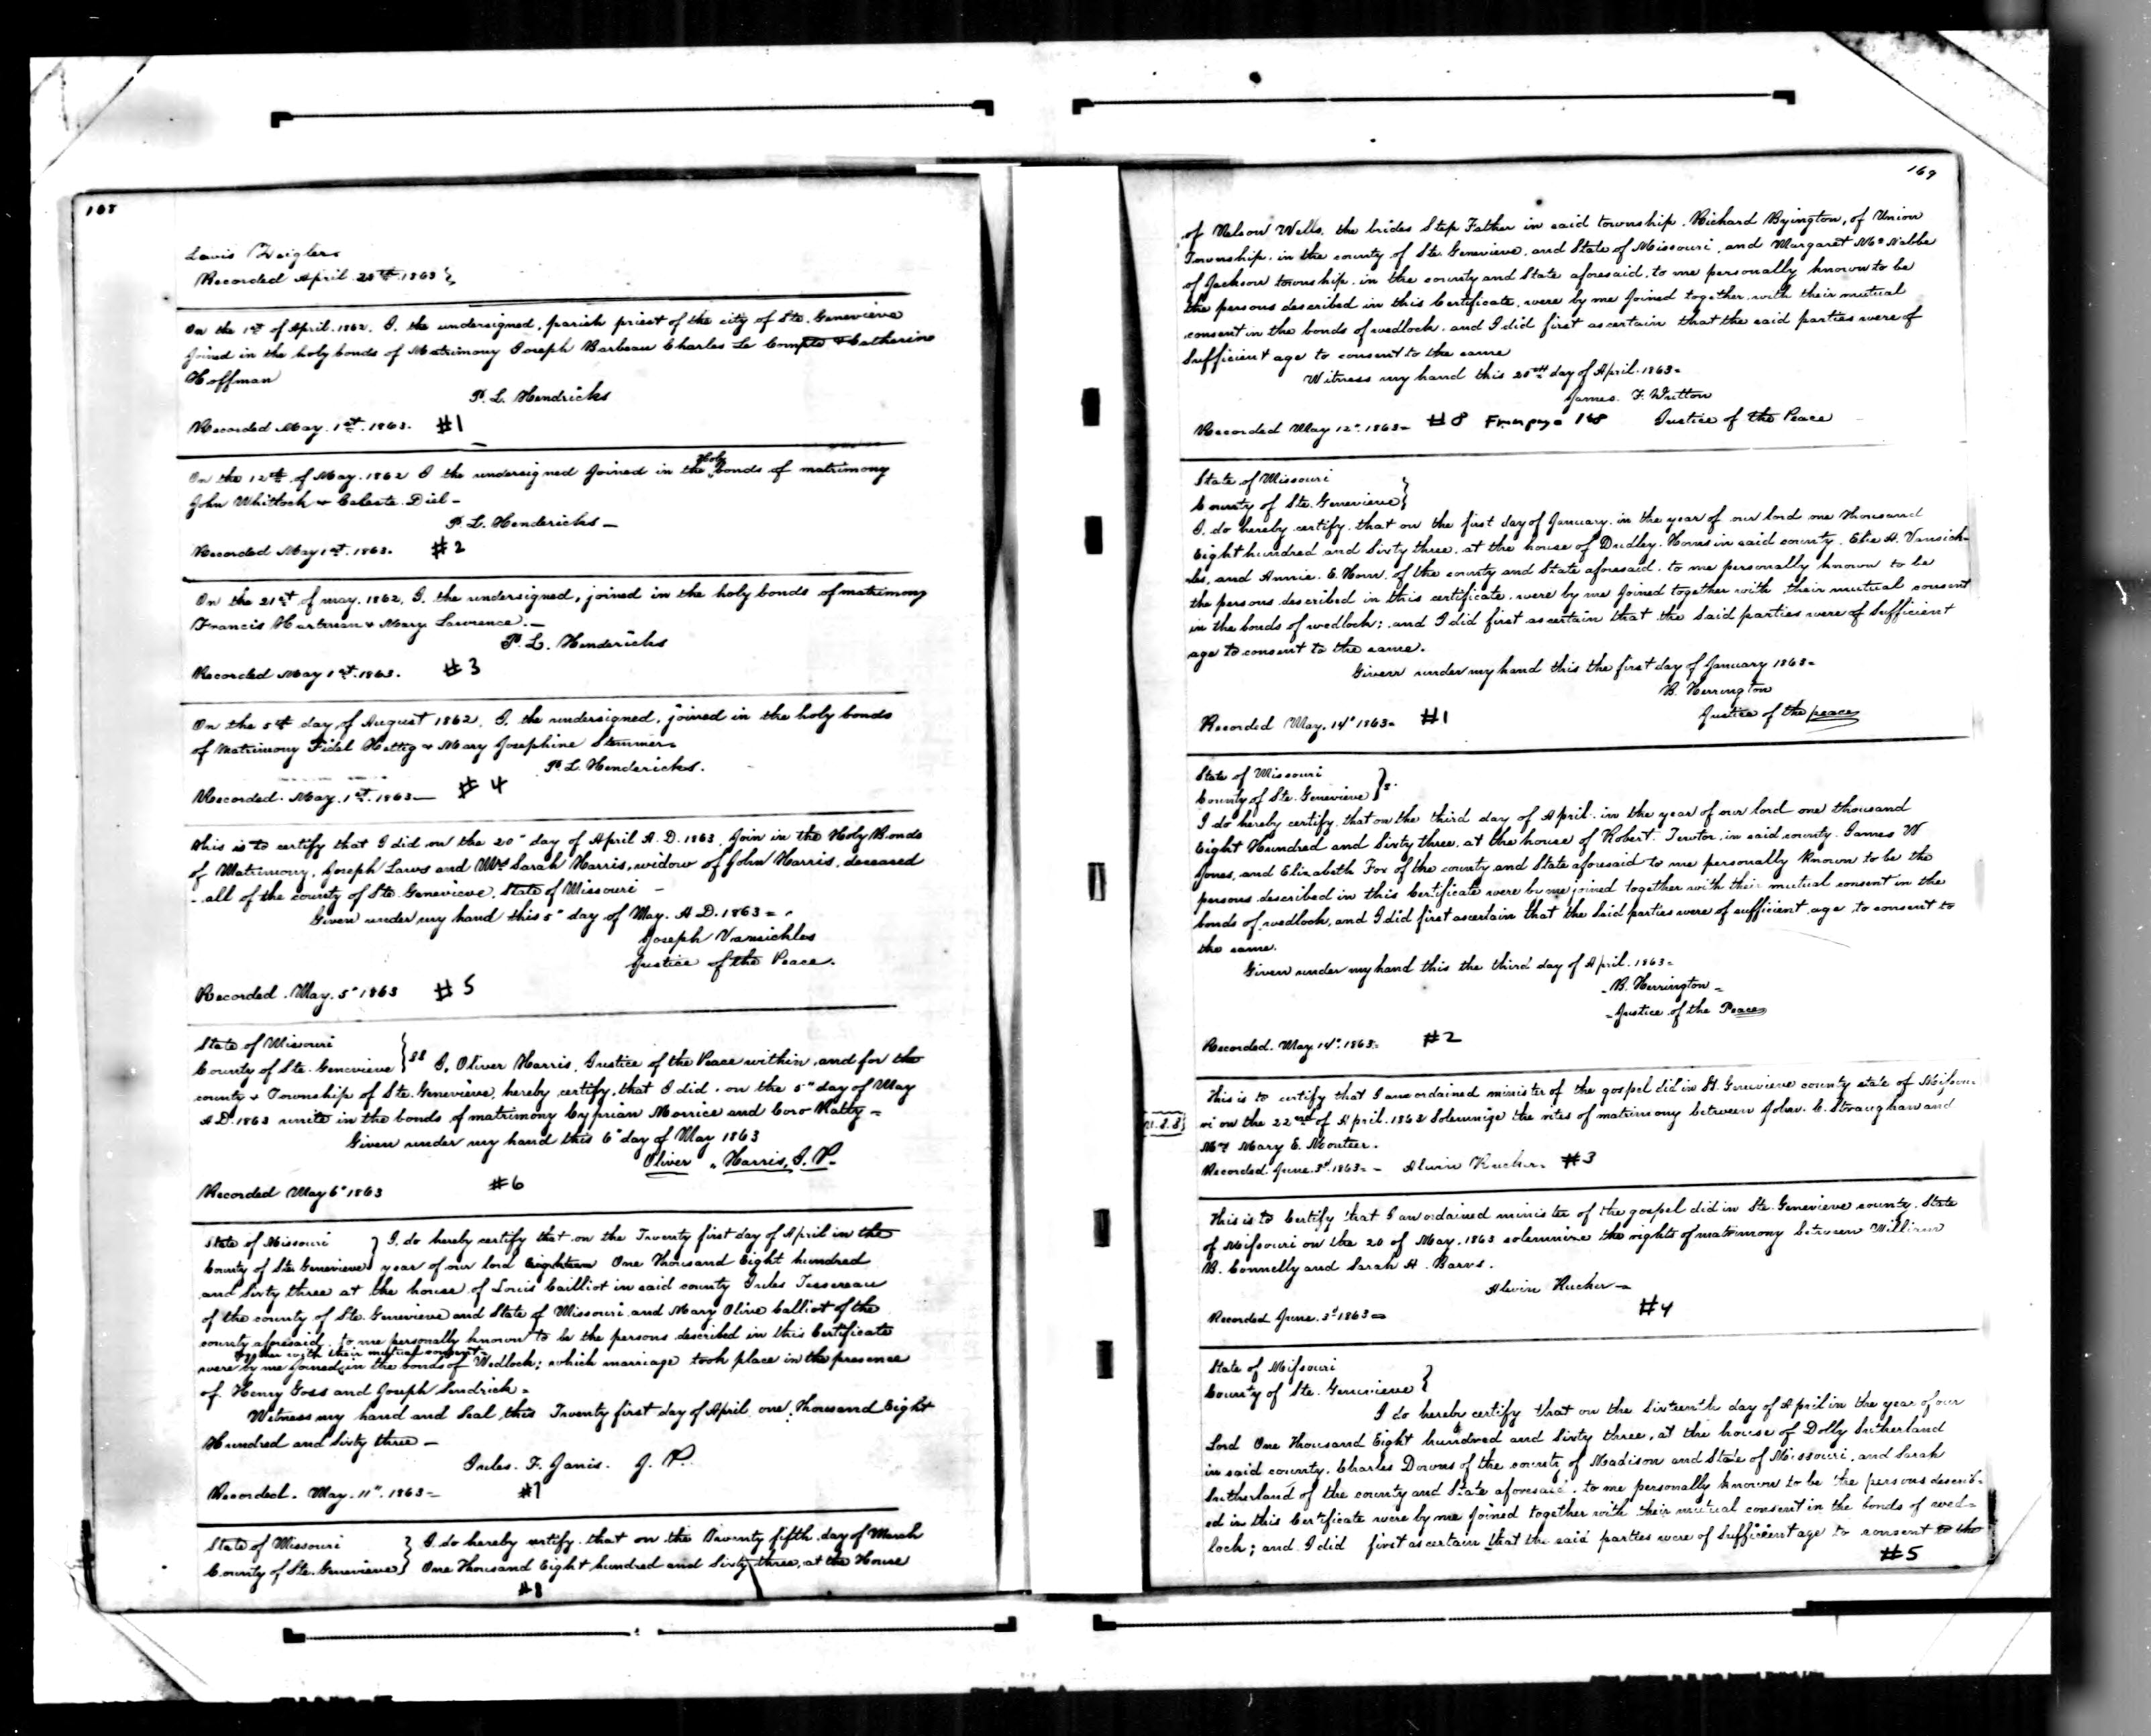 168
Louis Zeigler
Recorded April 28th 1863
On the 1st of April. 1862. I. the undersigned, parish priest of the city of Ste. Genevieve
joined in the holy bonds of Matrimony Joseph Barbeau Charles Le Compte & Catherine
Hoffman
P. L. Hendricks
Recorded May. 1st. 1863. #1
On the 12th of May. 1862 I the undersigned joined in the Holy bonds of matrimony
John Whitlock & Celeste Diel -
P. L. Hendericks -
Recorded May 1st. 1863. #2
On the 21st of may. 1862, I. the undersigned, joined in the holy bonds of matrimony
Francis Hartman & Mary Lawrence. -
P. L. Hendericks
Recorded May 1st. 1863. #3
On the 5th day of August 1862, I. the undersigned, joined in the holy bonds
of Matrimony Fidel Hettig & Mary Josephine Stemmer.
P. L. Hendericks.
Recorded. May. 1st. 1863 - #4
This is to certify that I did on the 20" day of April A. D. 1863, Join in the Holy Bonds
of Matrimony, Joseph Laws and Mrs Sarah Harris, widow of John Harris, deceased
- all of the county of Ste. Genevieve, State of Missouri -
Given under my hand this 5" day of May. A D. 1863 =
Joseph Vansickles
Justice of the Peace.
Recorded. May. 5" 1863 #5
State of Missouri
County of Ste. Genevieve } SS I, Oliver Harris, Justice of the Peace within, and for the
county & Township of Ste. Genevieve, hereby certify, that I did. on the 5" day of May
A D. 1863 unite in the bonds of matrimony Cyprian Morrice and Coro Ratty =
Given under my hand this 6" day of May 1863
Oliver Harris, J. P.
Recorded May 6" 1863 #6
State of Missouri } I, do hereby certify that on the Twenty first day of April in the
County of Ste. Genevieve year of our lord One Thousand Eight hundred
and Sixty three at the house of Louis Cailliot in said county Jules Tessereau
of the county of Ste. Genevieve and State of Missouri and Mary Olive Calliot of the
county aforesaid, to me personally known to be the persons described in this Certificate
together with their mutual consent
were by me joined in the bonds of Wedlock; which marriage took place in the presence
of Henry Goss and Joseph Sendrick =
Witness my hand and Seal this Twenty first day of April one Thousand Eight
Hundred and Sixty three -
Jules. F. Janis. J. P.
Recorded. May. 11". 1863 = #7
State of Missouri } I do hereby certify. that on the Twenty fifth day of March
County of Ste. Genevieve } One Thousand Eight hundred and Sixty three, at the House
#8
169
of Nelson Wells, the brides Step Father in said township. Richard Byington, of Union
Township. in the county of Ste. Genevieve, and State of Missouri, and Margaret McNabbe
of Jackson township. in the county and State aforesaid, to me personally known to be
the persons described in this Certificate, were by me Joined together, with their mutual
consent in the bonds of wedlock. and I did first ascertain that the said parties were of
Sufficient age to consent to the same
Witness my hand this 28th day of April. 1863 =
James. F. Dutton
Recorded May 12". 1863 = #8 From page 168 Justice of the Peace
State of Missouri
County of Ste. Genevieve }
I, do hereby certify, that on the first day of January. in the year of our lord one thousand
Eight hundred and Sixty three, at the house of Dudley. Horns in said county. Elie H. Vansick-
les, and Annie. E. Horn, of the county and State aforesaid. to me personally known to be
the persons described in this certificate, were by me Joined together with their mutual consent
in the bonds of wedlock; and I did first ascertain that the Said parties were of Sufficient
age to consent to the same.
Given under my hand this the first day of January 1863 =
B. Herrington
Justice of the peace
Recorded May. 14" 1863 = #1
State of Missouri
County of Ste. Genevieve }
I do hereby certify, that on the third day of April. in the year of our lord one thousand
Eight Hundred and Sixty three, at the house of Robert. in said county. James W
Jones, and Elizabeth Fox of the county and State aforesaid to me personally Known to be the
persons described in this Certificate were by me joined together with their mutual consent in the
bonds of wedlock, and I did first ascertain that the Said parties were of sufficient age to consent to
the same.
Given under my hand this the third day of April. 1863 =
B. Herrington =
Justice of the Peace
Recorded. May. 14". 1863 = #2
This is to certify that I an ordained minister of the gospel did in St. Genevieve county state of Missou-
ri on the 22nd of April. 1863 Solemnize the rites of matrimony between John. C. Straughan and
Mrs Mary E. Monteer.
Recorded June. 3d. 1863 = - Alwin Rucker. #3
This is to Certify that I an ordained minister of the gospel did in Ste. Genevieve county, State
of Missouri on the 20 of May. 1863 solemnize the rights of matrimony between William
B. Connelly and Sarah A. Barns.
Alwin Rucker -
Recorded June. 3d 1863 = #4
State of Missouri
County of Ste. Genevieve }
I do hereby certify that on the Sixteenth day of April in the year of our
Lord One Thousand Eight hundred and Sixty three, at the house of Dolly Sutherland
in said county. Charles Downs of the county of Madison and State of Missouri, and Sarah
Sutherland of the county and State aforesaid. to me personally known to be the persons describ-
ed in this Certificate were by me Joined together with their mutual consent in the bonds of wed=
lock; and I did first ascertain that the said parties were of Sufficient age to consent to the
#5